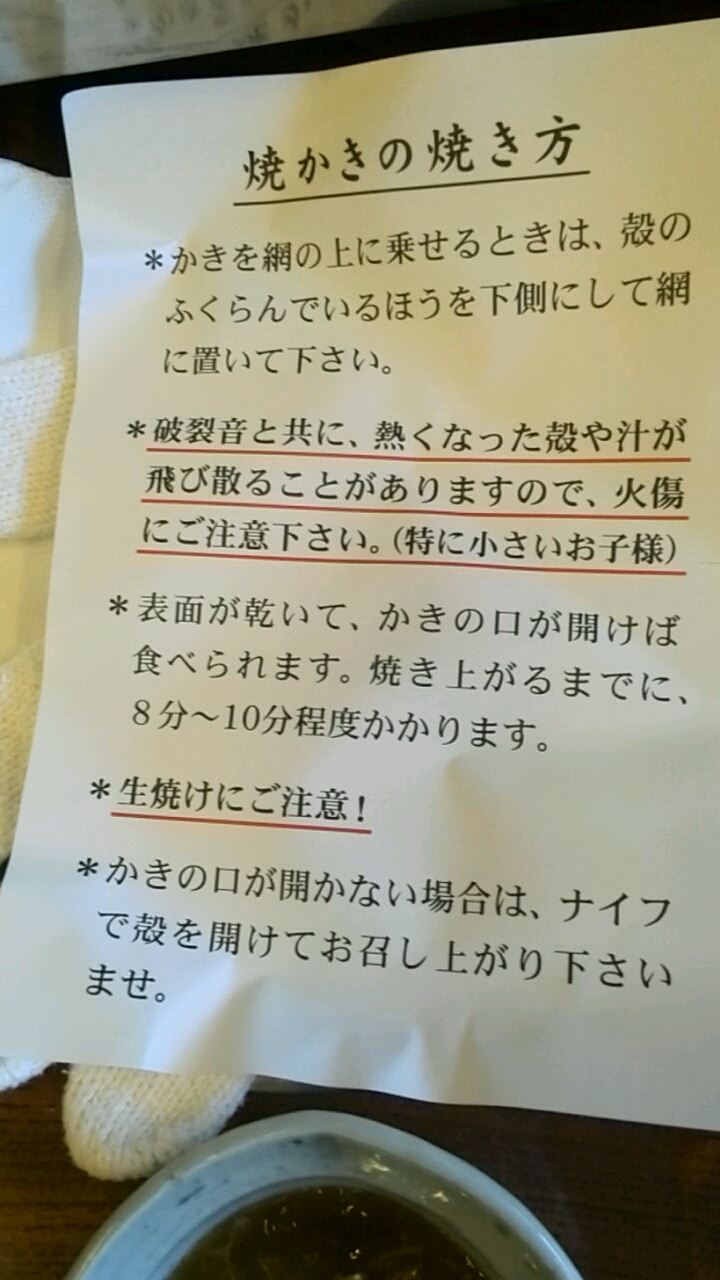 焼かきの焼き方
＊かきを網の上に乗せるときは、殻の
ふくらんでいるほうを下側にして網
に置いて下さい。
＊破裂音と共に、熱くなった殻や汁が
飛び散ることがありますので、火傷
にご注意下さい。（特に小さいお子様）
＊表面が乾いて、かきの口が開けば
食べられます。焼き上がるまでに、
８分〜10分程度かかります。
＊生焼けにご注意！
＊かきの口が開かない場合は、ナイフ
で殻を開けてお召し上がり下さい
ませ。